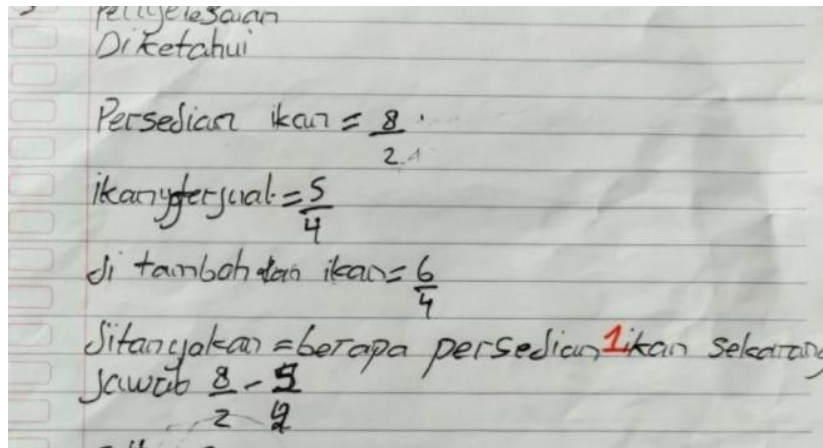 Penyelesaian
Diketahui
Persedian ikan = 8/2
ikan yg terjual = 5/4
di tambahkan ikan = 6/4
ditanyakan = berapa persedian 1 ikan sekarang
Jawab 8/2 - 5